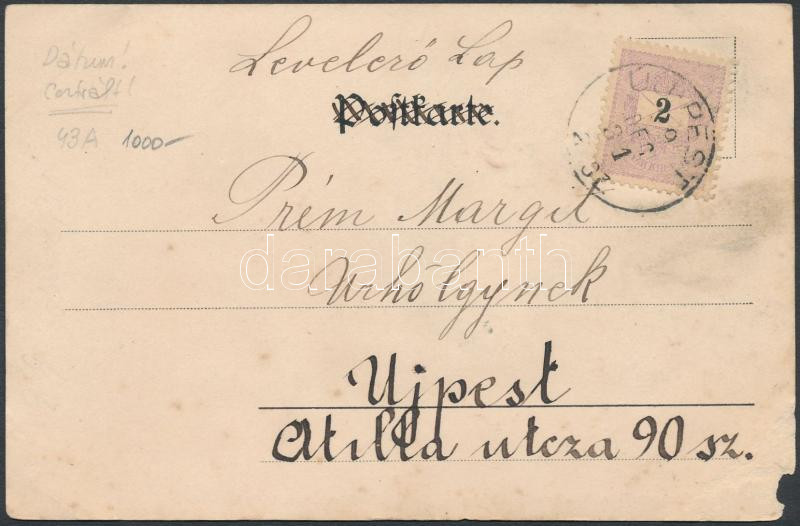 Dátum!
43A 1000-
Levelező Lap
Postkarte.
2
UJPEST
DEC
31
Prém Margit
Urhölgynek
darabanth
Ujpest
Atilla utcza 90 sz.